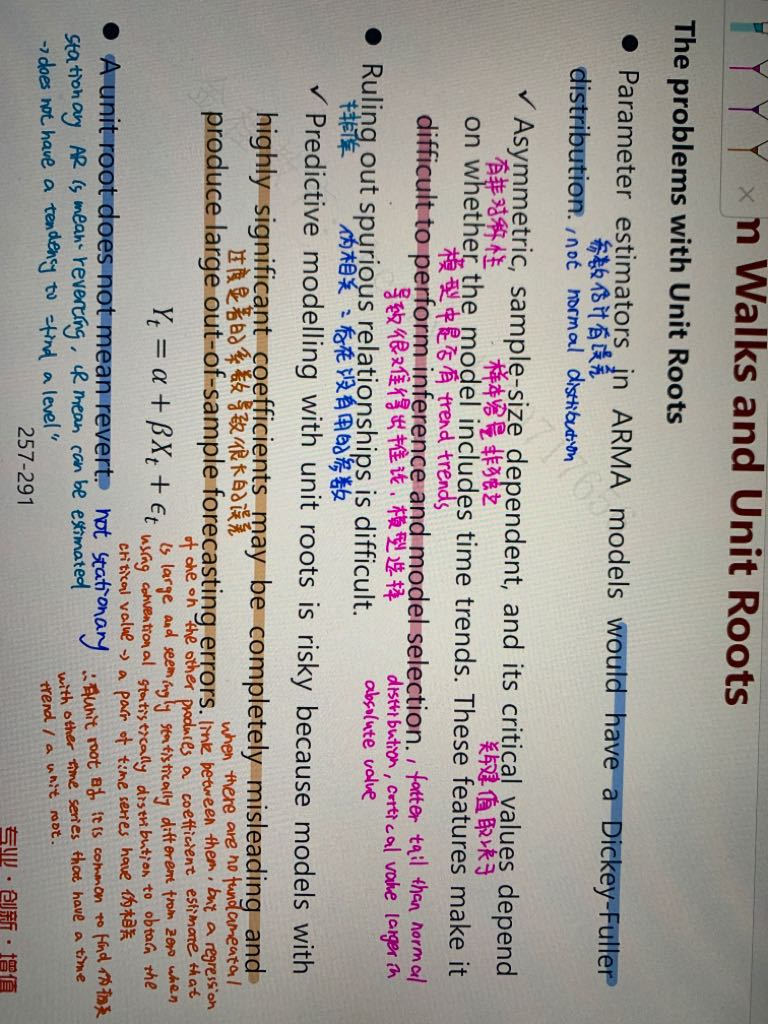 m Walks and Unit Roots
The problems with Unit Roots
● Parameter estimators in ARMA models would have a Dickey-Fuller
参数估计有误差
distribution. , not normal distribution
✓ Asymmetric, sample-size dependent, and its critical values depend
有非对称性 样本容量非独立 关键值取决于
on whether the model includes time trends. These features make it
模型中是否有 trend trends
difficult to perform inference and model selection. , fatter tail than normal
导致很难得出推论,模型选择 distribution, critical value larger in
absolute value
● Ruling out spurious relationships is difficult.
排除 伪相关:存在没有用的参数
✓ Predictive modelling with unit roots is risky because models with
highly significant coefficients may be completely misleading and
过度显著的系数导致很大的误差
produce large out-of-sample forecasting errors.
when there are no fundamental
link between them, but a regression
of one on the other produces a coefficient estimate that
is large and seemingly statistically different from zero when
using conventional statistically distribution to obtain the
critical value → a pair of time series have 伪相关
Yt = α + βXt + ϵt
∴ 有unit root 时, it is common to find 伪相关
with other time series that have a time
trend / a unit root.
● A unit root does not mean revert. not stationary
stationary AR is mean reverting, & mean can be estimated
→ does not have a tendency to "find a level"
257-291
专业·创新·增值